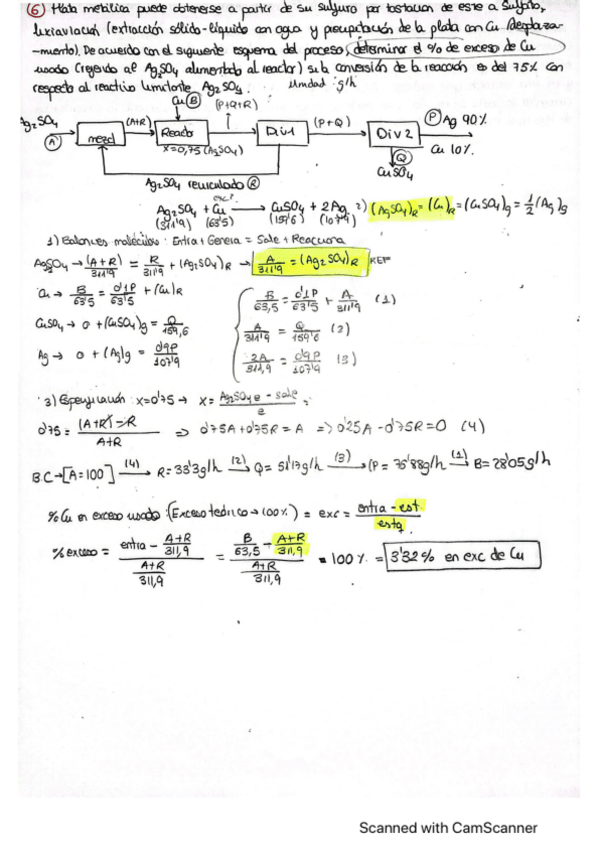 (6) Plata metálica puede obtenerse a partir de su sulfuro por tostación de este a Sulfato,
lixiviación (extracción sólido-líquido con agua y precipitación de la plata con Cu (desplaza-
-miento). De acuerdo con el siguiente esquema del proceso, determinar el % de exceso de Cu
usado (referido al Ag2SO4 alimentado al reactor) si la conversión de la reacción es del 75% con
respecto al reactivo limitante Ag2SO4. Unidad: g/h
Cu (B) (P+Q+R)
Ag2SO4 (A+R) (P+Q) (P) Ag 90%
(A) Reactor Div1 Div2 Cu 10%
X=0,75 (Ag2SO4) (Q)
CuSO4
Ag2SO4 reciclado (R)
exc
Ag2SO4 + Cu → CuSO4 + 2Ag 2) (AgSO4)R = (Cu)R = (CuSO4)g = 1/2 (Ag)g
(311'9) (63'5) (159'6) (107'9)
1) Balances moleculares: Entra + Genera = Sale + Reacciona
Ag2SO4 → (A+R)/311'9 = R/311'9 + (Ag2SO4)R → A/311'9 = (Ag2SO4)R REF
Cu → B/63'5 = 0'1P/63'5 + (Cu)R
B/63,5 = 0'1P/63'5 + A/311'9 (1)
CuSO4 → 0 + (CuSO4)g = Q/159,6
A/311'9 = Q/159'6 (2)
Ag → 0 + (Ag)g = 0'9P/107'9
2A/311,9 = 0'9P/107'9 (3)
3) Especificación: X=0'75 → X = Ag2SO4 e - sale/e =
0'75 = (A+R)-R/A+R ⇒ 0'75A+0'75R = A ⇒ 0'25A - 0'75R = 0 (4)
B.C → [A=100] (4)→ R = 33'3g/h (2)→ Q = 51'17g/h (3)→ (P = 76'88g/h (1)→ B = 28'05g/h
% Cu en exceso usado: (Exceso teórico → 100%) = exc = entra - est/estq
% exceso = entra - A+R/311,9 / A+R/311,9 = B/63,5 - A+R/311,9 / A+R/311,9 · 100% = 3'32% en exc de Cu
Scanned with CamScanner